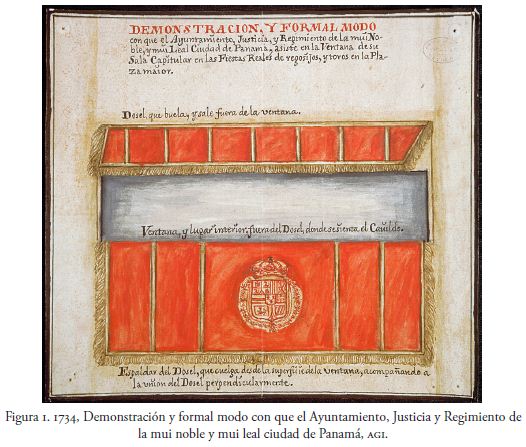 DEMONSTRACION, Y FORMAL MODO
con que el Ayuntamiento, Justicia, y Regimiento de la mui No-
ble, y mui Leal Ciudad de Panamá, asiste en la Ventana de su
Sala Capitular en las Fiestas Reales de regosijos, y toros en la Pla-
za maior.
Dosel, que buela, y sale fuera de la ventana.
Ventana, y lugar interior, fuera del Dosel, donde se sienta el Cavildo.
Espaldar del Dosel, que cuelga desde la superfiçie de la Ventana, acompañando a
la union del Dosel perpendicularmente.
Figura 1. 1734, Demonstración y formal modo con que el Ayuntamiento, Justicia y Regimiento de
la mui noble y mui leal ciudad de Panamá, AGI.